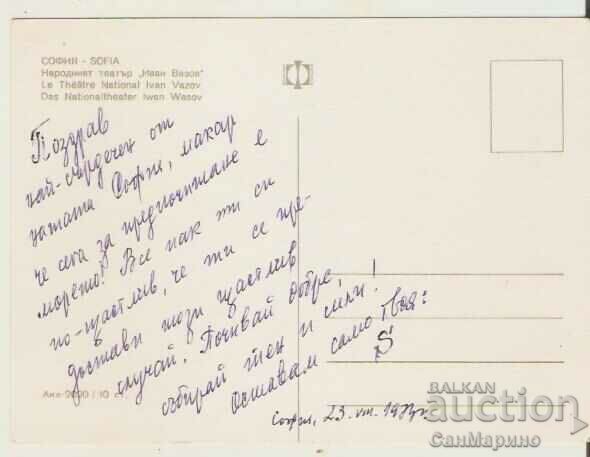 СОФИЯ - SOFIA
Народният театър „Иван Вазов"
Le Théâtre National Ivan Vazov
Das Nationaltheater Iwan Wasov
Поздрав
най-сърдечен от
нашата София, макар
че сега за предпочитане е
морето! Все пак ти си
по-щастлив, че ти се пре-
достави този щастлив
случай. Почивай добре,
събирай тен и сили!
Оставам само твоя:
S
София, 23. VIII.
10 ст.
BALKAN
auction
СанМарино